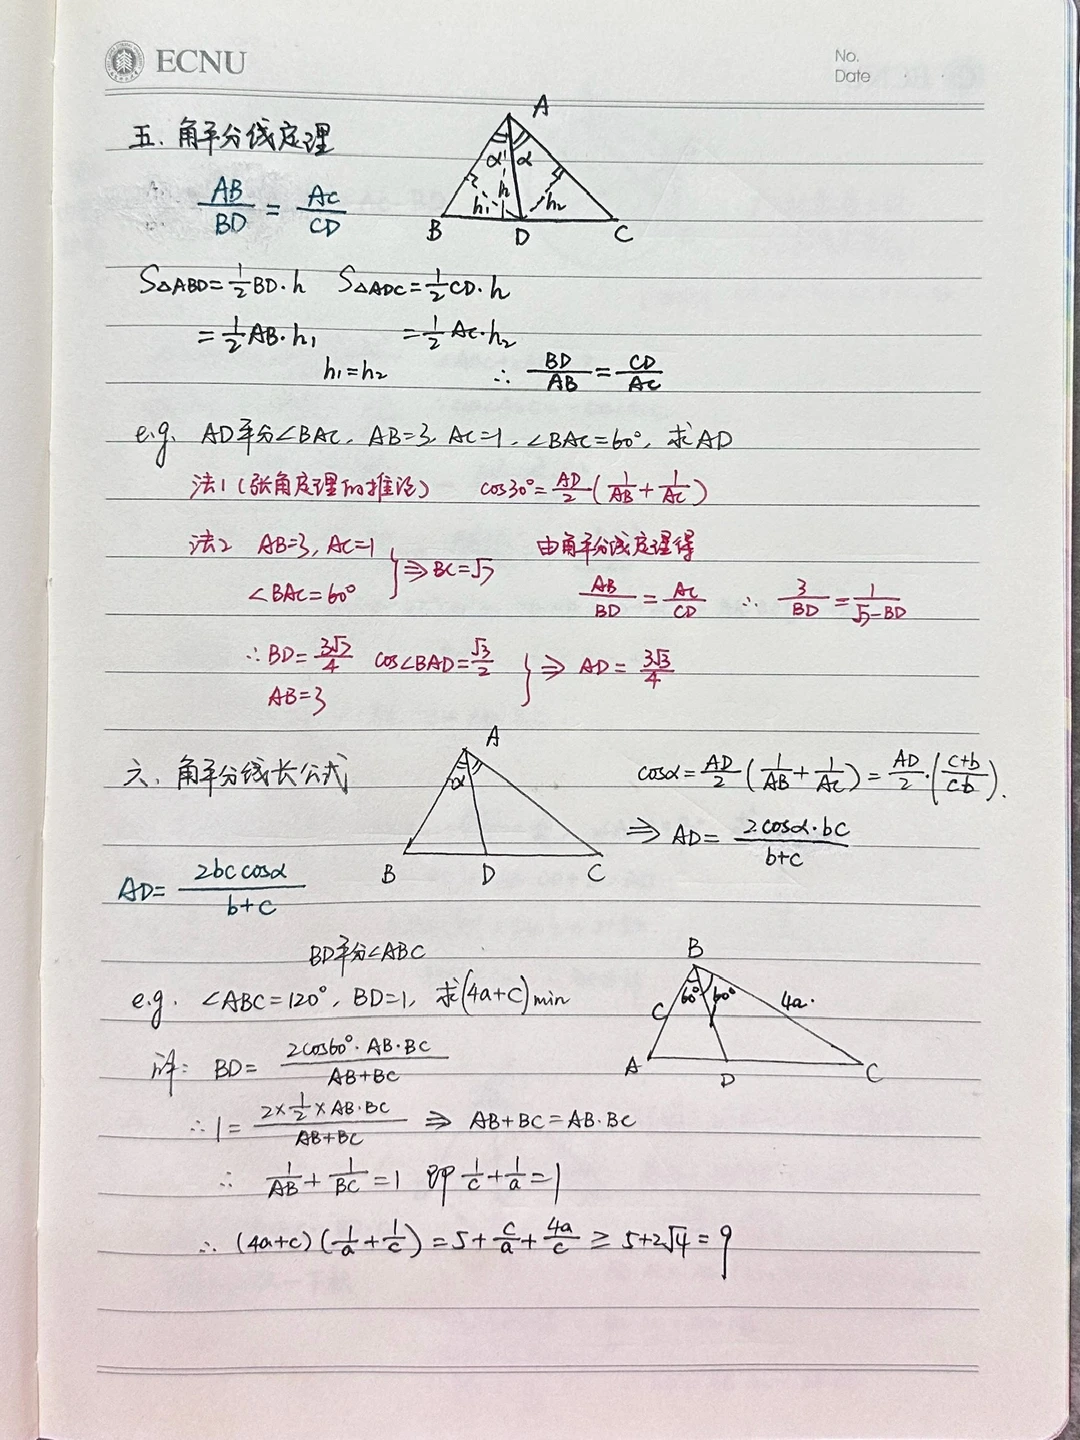 ECNU
No.
Date
五、角平分线定理
AB/BD = AC/CD
A
α α
h₁ h h₂
B D C
S△ABD=1/2BD·h S△ADC=1/2CD·h
=1/2AB·h₁ =1/2AC·h₂
h₁=h₂ ∴ BD/AB=CD/AC
e.g. AD平分∠BAC, AB=3, AC=1, ∠BAC=60°, 求AD
法1(张角定理的推论) cos30°=AD/2(1/AB+1/AC)
法2 AB=3, AC=1
∠BAC=60° } ⇒ BC=√7
由角平分线定理得
AB/BD=AC/CD ∴ 3/BD=1/(√7-BD)
∴BD=3√7/4 cos∠BAD=√3/2
AB=3 } ⇒ AD=3√3/4
六、角平分线长公式
A
α
B D C
cosα=AD/2(1/AB+1/AC)=AD/2·((c+b)/(cb)).
⇒ AD=(2cosα·bc)/(b+c)
AD=(2bccosα)/(b+c)
BD平分∠ABC
e.g. ∠ABC=120°, BD=1, 求(4a+c)min
B
60° 60°
c 4a.
A D C
译: BD=(2cos60°·AB·BC)/(AB+BC)
∴1=(2×1/2×AB·BC)/(AB+BC) ⇒ AB+BC=AB·BC
∴ 1/AB+1/BC=1 即1/c+1/a=1
∴ (4a+c)(1/a+1/c)=5+c/a+4a/c≥5+2√4=9